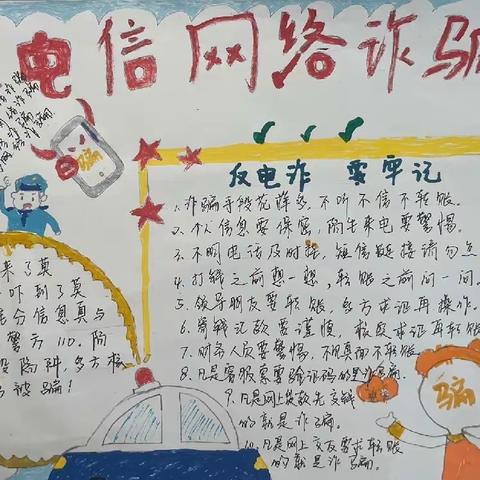 电信网络诈骗
骗
反电诈 要牢记
1.诈骗手段花样多,不听不信不转账。
2.个人信息要保密,陌生来电要警惕。
3.不明电话及时挂,短信链接请勿点
4.打钱之前想一想,转账之前问一问。
5.领导朋友要转账,多方求证再操作。
6.寄钱汇款要谨慎,核实求证再转账
7.财务人员要警惕,不见真面不转账
8.凡是客服索要验证码的
9.凡是网上贷款先交钱
的都是诈骗。
10.凡是网上交友要求转账
的都是诈骗。
来了莫
吓到了莫
分信息真与
警方110.陌
多方核
被骗!
骗